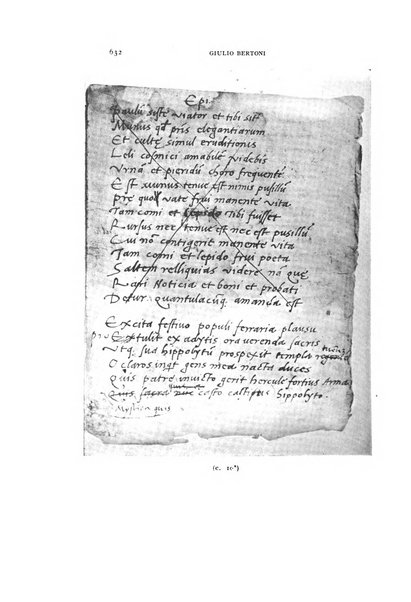 632
GIULIO BERTONI
Epi.
Paulū siste viator et tibi sit
Munus qd pris elegantiarum
Et culte simul eruditionis
Leli cosmici amabile videbis
Vrna et pieridū choro frequente
Est munus tenue est nimis pusillū
Pre quo vate frui manente vita
Tam comi et lepido tibi fuisset
Rursus nec tenue est nec est pusillū
Cui nō contigerit manente vita
Tam comi et lepido frui poeta
Saltem relliquias videre nō que
Rapi Noticia et boni et probati
Detur quantulacūq. amanda est
Excita festivo populi ferraria plausu
pro Extulit ex adytis ora verenda sacris
Vtq. sua hippolytū prospexit templa
O claros inqt gens mea nacta duces
Quis patre invicto gerit hercule fortius Arma
Quis sacra casto castius hippolyto.
Mystica quis
(c. 10ᵛ)